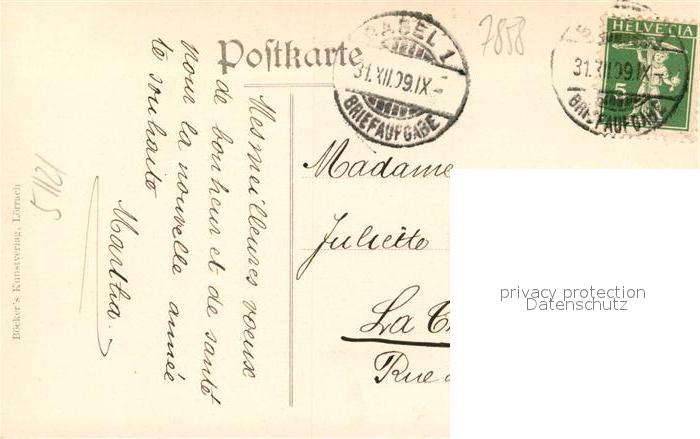 Postkarte
BASEL 1
31.XII.09.IX-
BRIEFAUFGABE
7858
HELVETIA
5
31.XII.09.IX-
BRIEFAUFGABE
Mes meilleures voeux
de bonheur et de santé
pour la nouvelle année
te souhaite
Martha.
Madame
Juliette
La
Rue
privacy protection
Datenschutz
Böcker's Kunstverlag, Lörrach